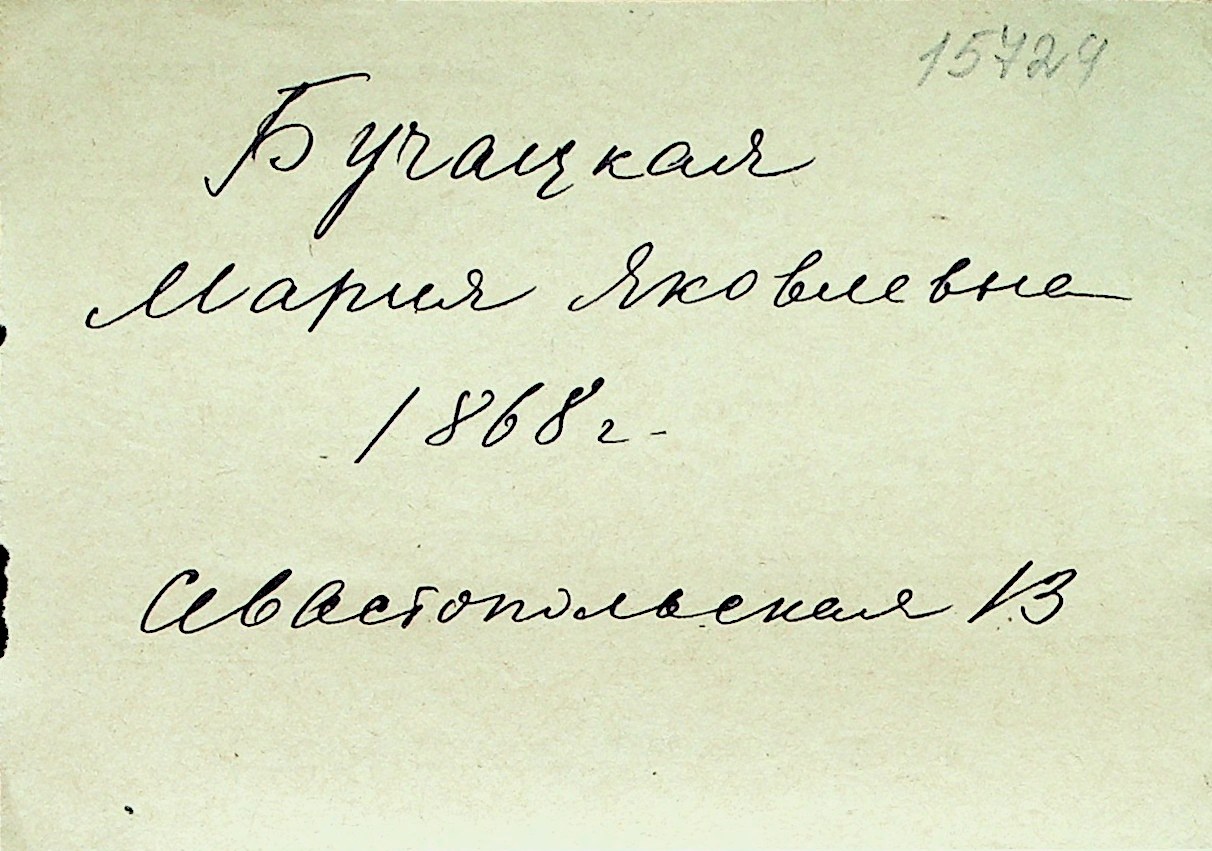 15729
Бучацкая
Мария Яковлевна
1868 г.
Севастопольская 13